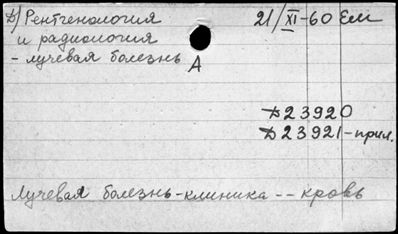 А) Рентгенология 21/XI-60 Еы
и радиология
- лучевая болезнь
А
Д23920
Д23921-прил.
Лучевая болезнь-клиника -- кровь